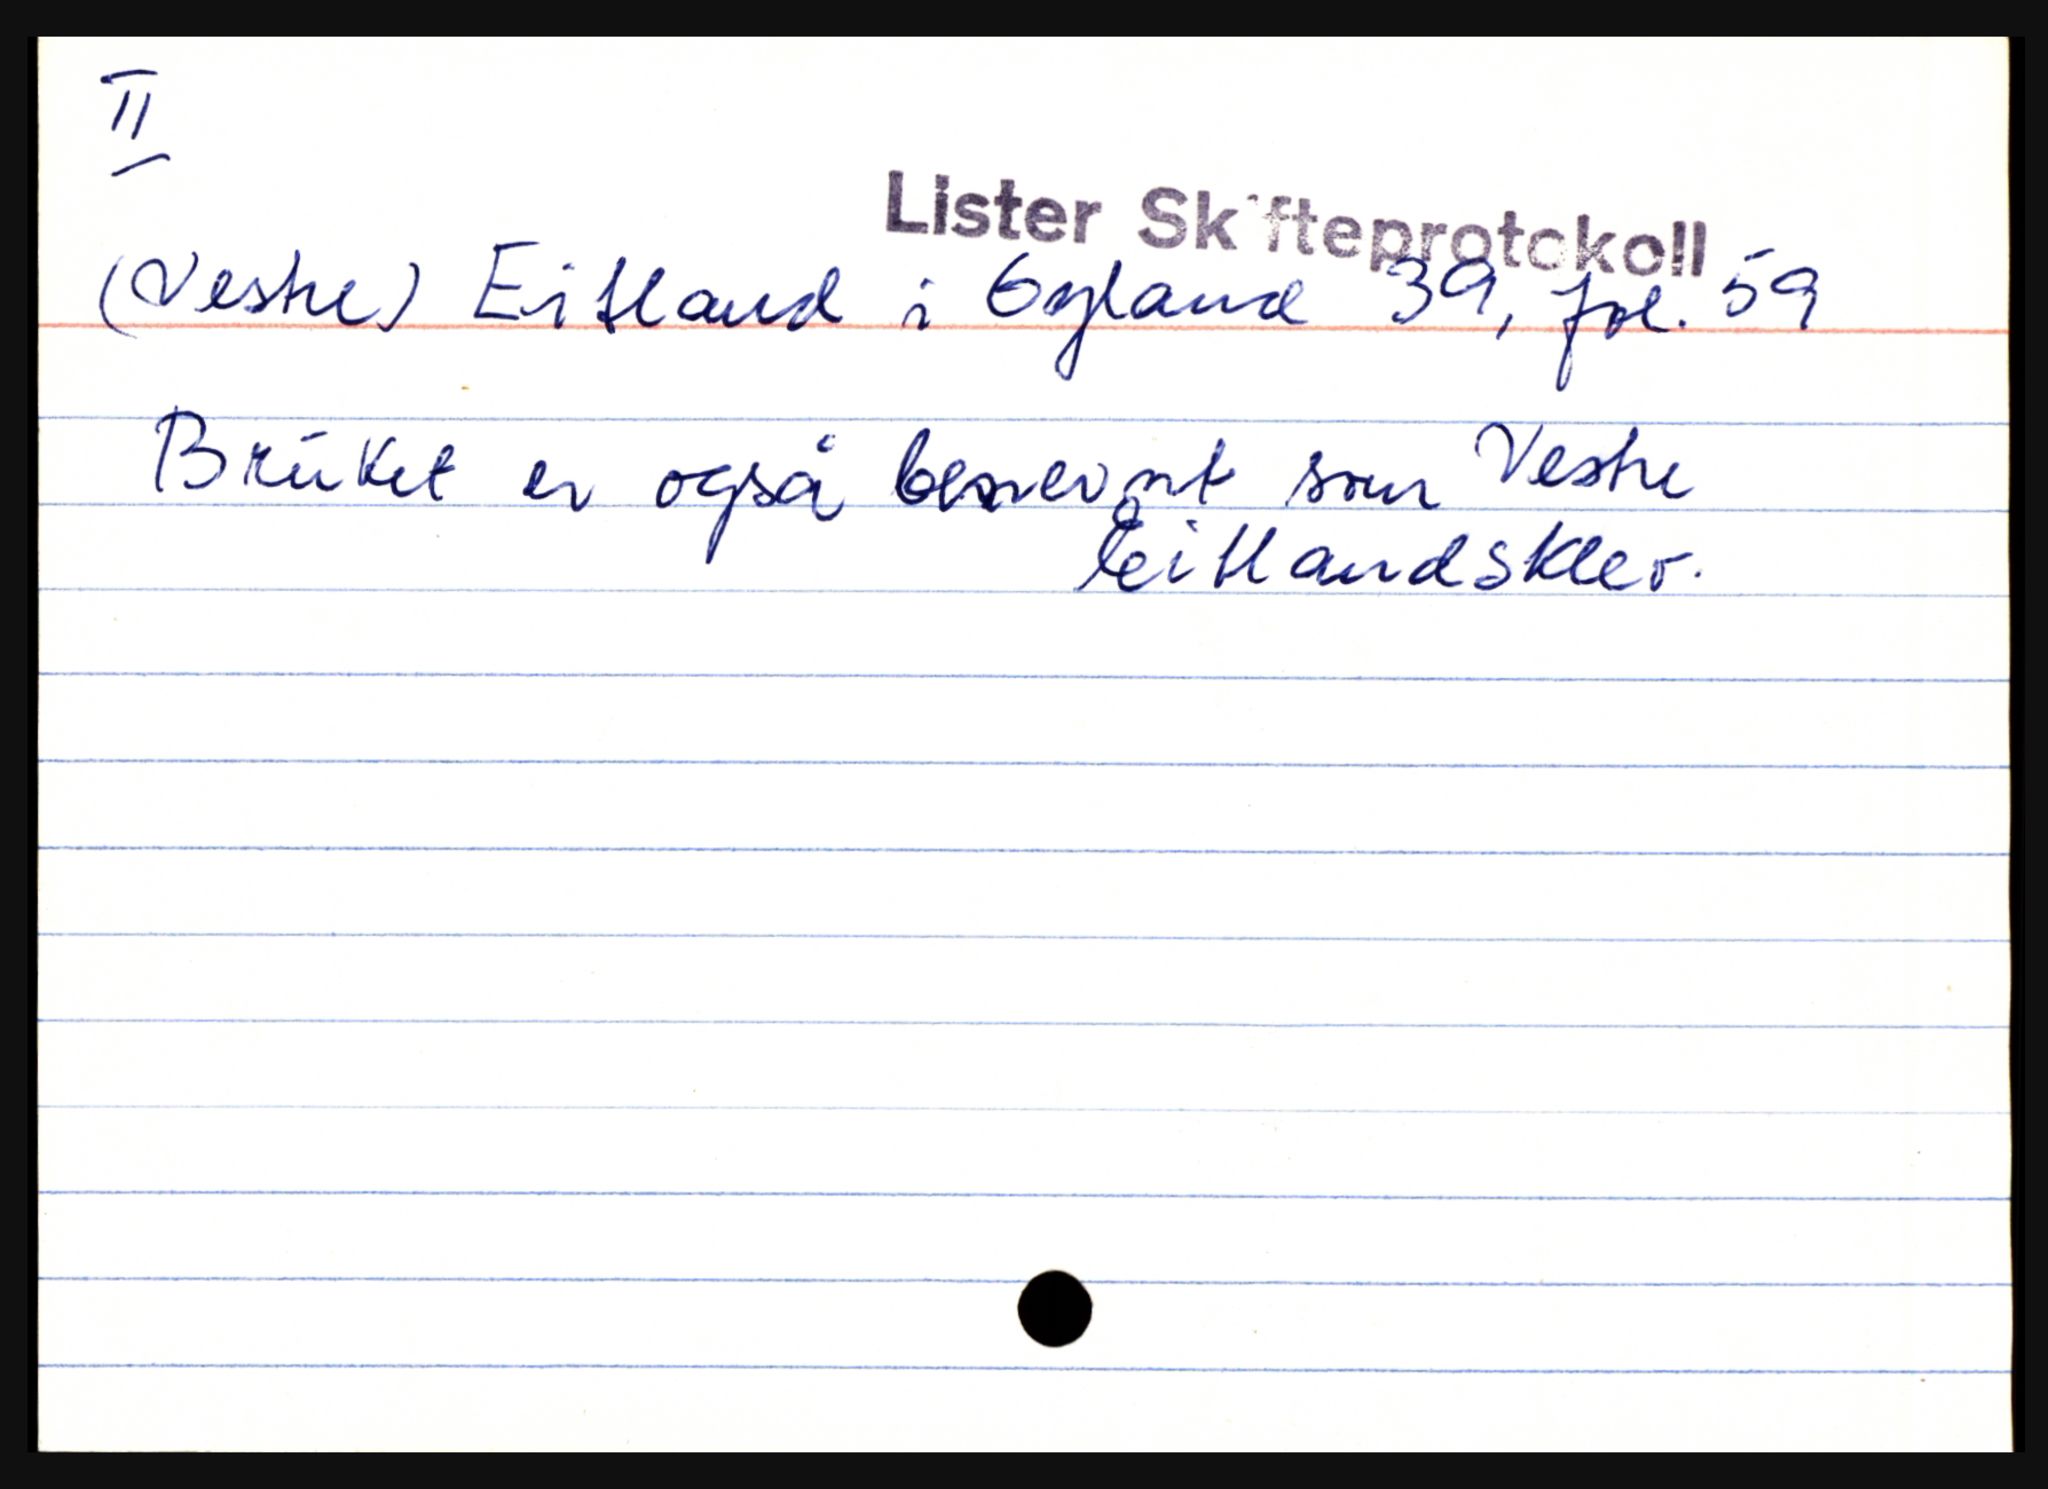 II
Lister Skifteprotokoll
(Vestre) Eitland i Gyland 39, fol. 59
Bruket er også benevnt som Vestre
Eitlandsklev.